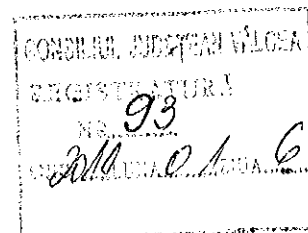 CONSILIUL JUDEȚEAN VÎLCEA
REGISTRATURĂ
NR. 93
LUNA 01 ZIUA 6